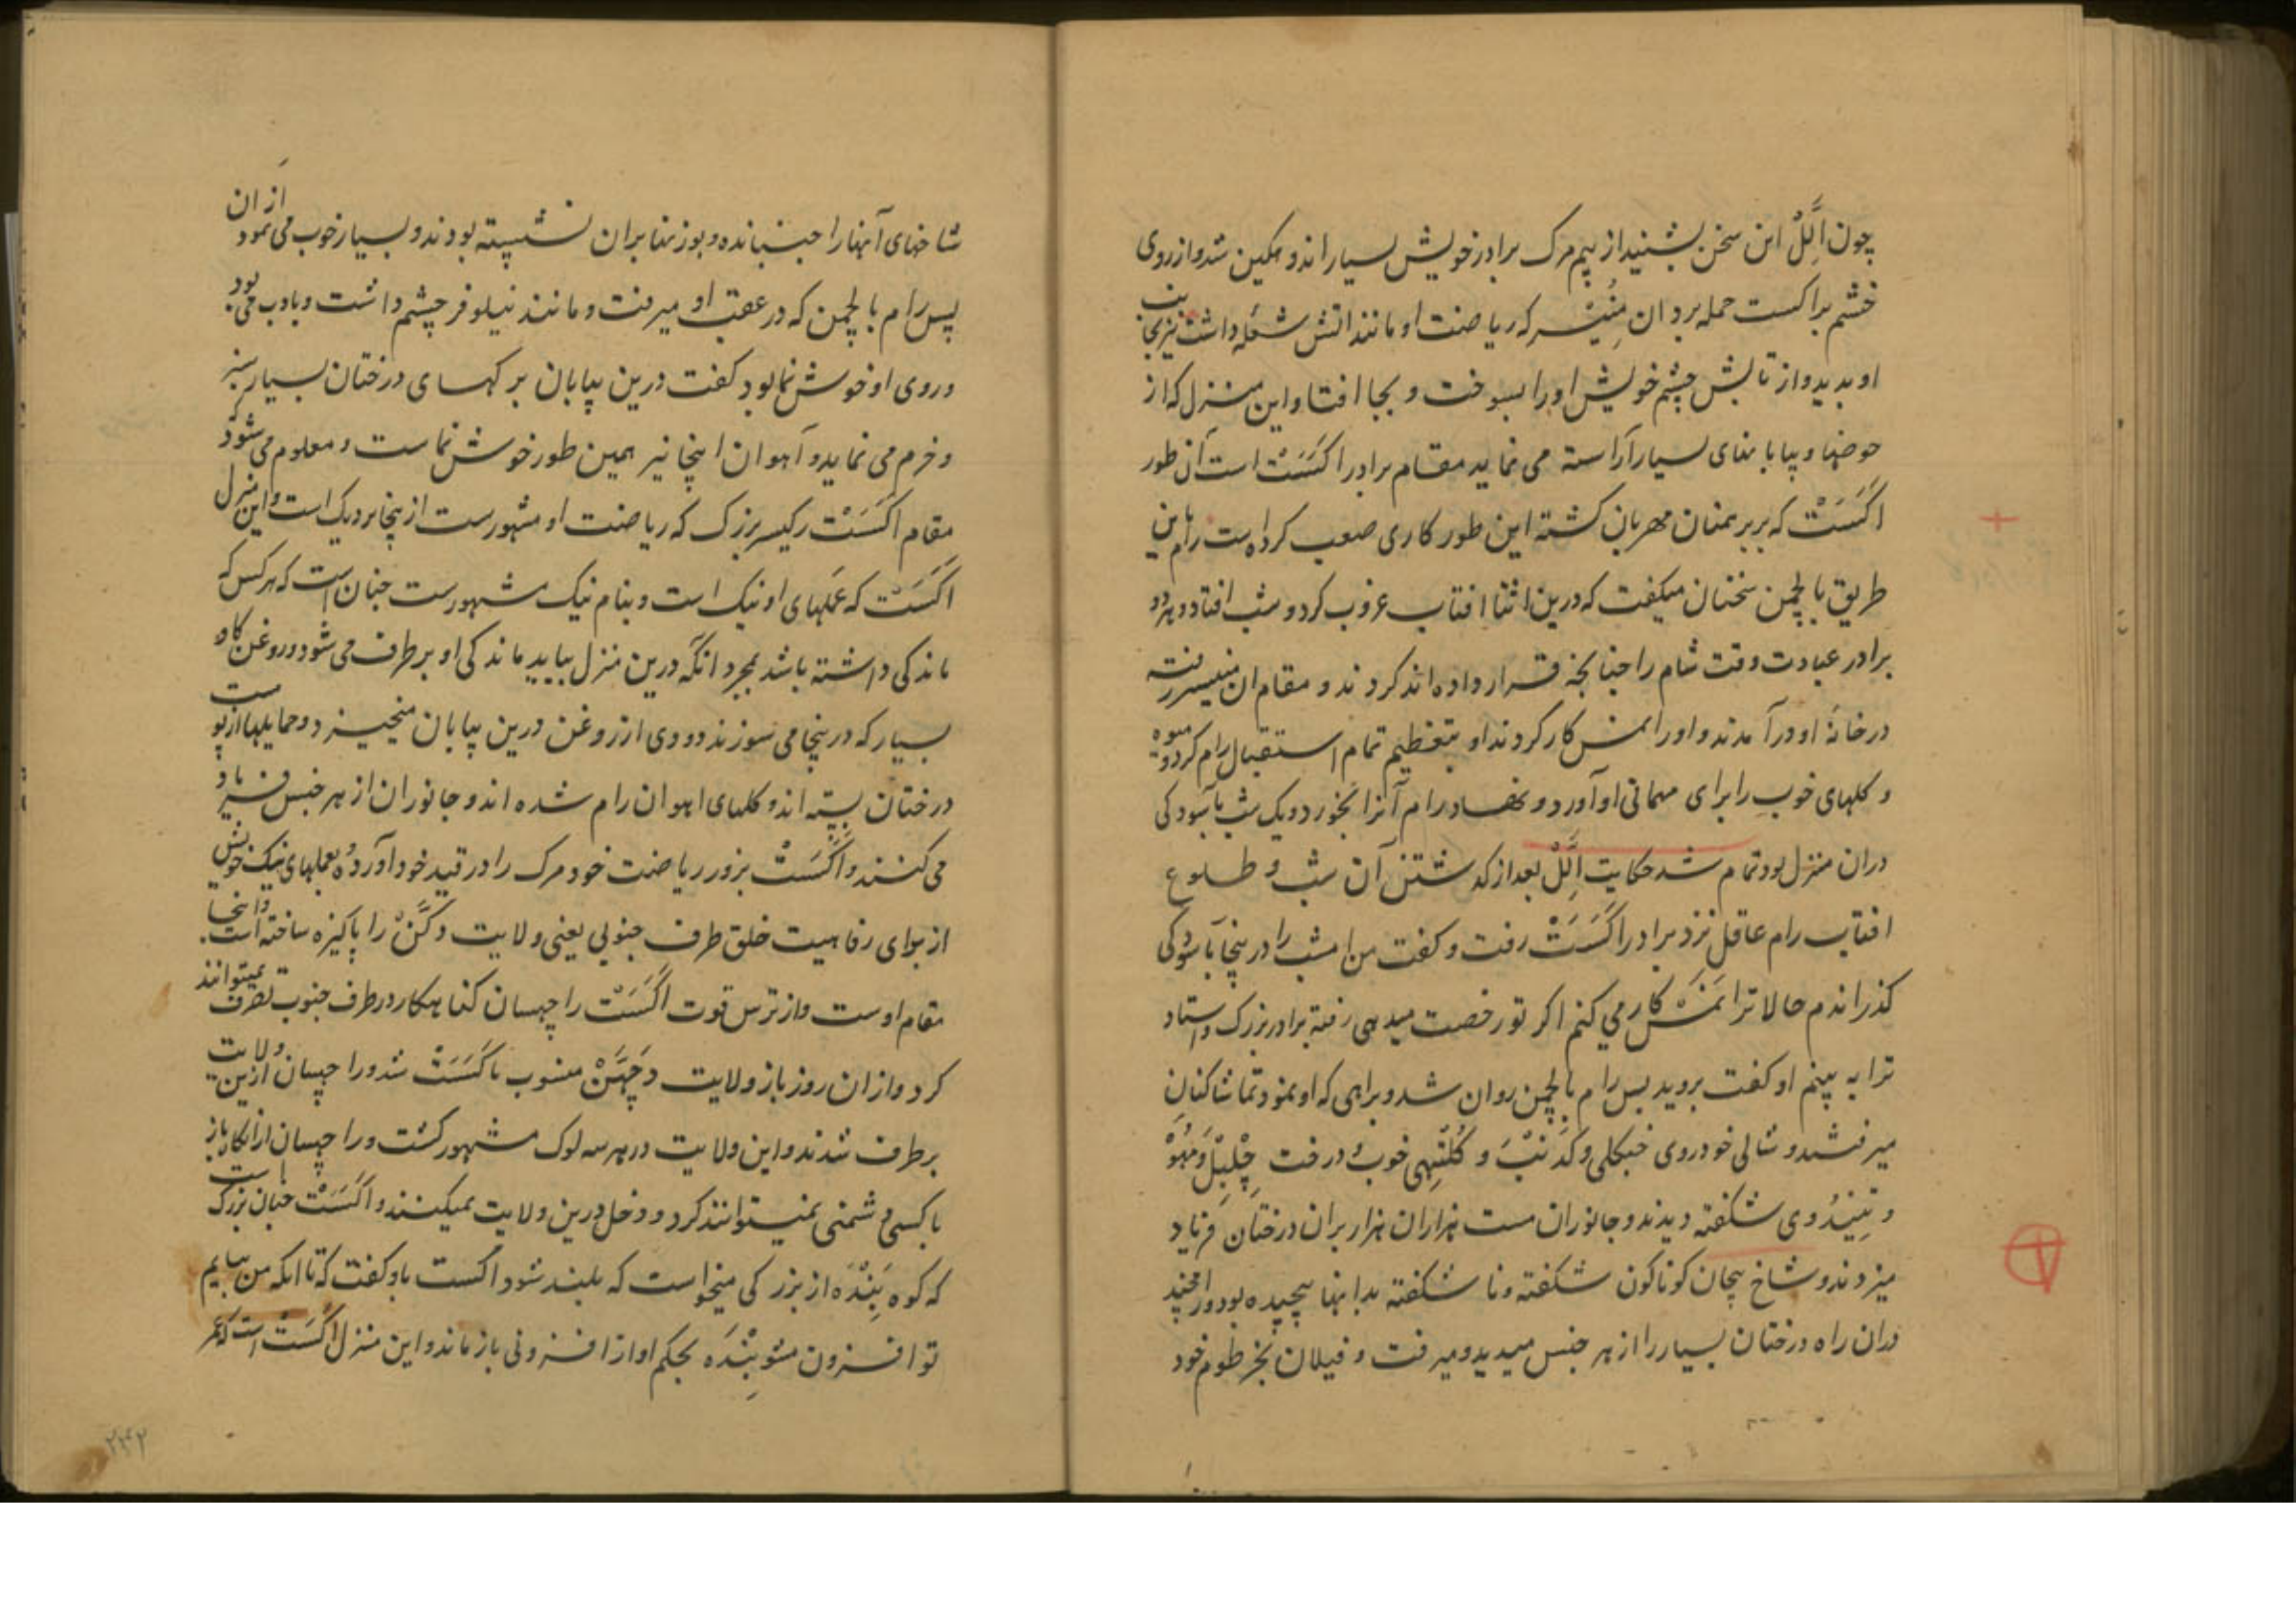 چون اِلَّلْ این سخن بشنید از بیم مرک برادر خویش بسیار اندوهکین شد و از روی
خشم بر اکست حمله برد ان مُنیْسر که ریاضت او مانند اتش شعله داشت تیز بجانب
او بدید و از تابش چشم خویش او را بسوخت و بجا افتاد و این منزل که از
حوضها و بیابانهای بسیار آراسته می نماید مقام برادر اکَسَتْ است آن طور
اکَسَتْ که بر برهمنان مهربان کشته این طور کاری صعب کرده است رام باین
طریق با لچمن سخنان میکفت که درین اثنا افتاب غروب کرد و شب افتاد و هر دو
برادر عبادت وقت شام را چنانچه قرار داده اند کردند و مقام ان منیسر رفته
در خانهٔ او در آمدند و او را نمسکار کردند او بتعظیم تمام استقبال رام کرد و میوه
و کلهای خوب را برای مهمانی او آورد و نهاد رام آنرا بخورد و یک شب بآسودکی
دران منزل بود تمام شد حکایت اِلَّلْ بعد از کذشتن آن شب و طلوع
افتاب رام عاقل نزد برادر اکَسَتْ رفت و کفت من امشب را در ینجا بآسودکی
کذراندم حالا ترا نَمَسْکار می کنم اکر تو رخصت میدهی رفته برادر بزرک و استاد
ترا به بینم او کفت بروید پس رام با لچمن روان شد و براهی که او نمود تماشا کنان
میرفتند و شالی خودروی جنکلی و کَدَنبْ و کُلَتِهی خوب و درخت چِلْبِلْ و مَهُوْ
و تِیندُوی شکفته دیدند و جانوران مست هزاران هزار بران درختان فریاد
میزدند و شاخ پیچان کوناکون شکفته و نا شکفته بدانها پیچیده بود و رامچند
دران راه درختان بسیار را از هر جنس میدید و میرفت و فیلان بخرطوم خود
شاخهای آنها را جنبانده و بوزنها بران نشسته بودند و بسیار خوب می نمود از ان
پس رام با لچمن که در عقب او میرفت و مانند نیلوفر چشم داشت و بادب می بود
و روی او خوش نما بود کفت درین بیابان برکهای درختان بسیار سبز
و خرم می نماید و آهوان اینجا نیز همین طور خوش نماست و معلوم می شود که
مقام اکَسَتْ رکیسر بزرک که ریاضت او مشهورست از ینجا نزدیک است و این منزل
اکَسَتْ که عَملهای او نیک است و بنام نیک مشهورست چنان است که هر کس که
ماندکی داشته باشد بمجرد انکه درین منزل بیاید ماندکی او بر طرف می شود و روغن کاو
بسیار که در ینجا می سوزند دودی از روغن درین بیابان میخیزد و حمایلها از پوست
درختان بسته اند و کلهای اهوان رام شده اند و جانوران از هر جنس فریاد
می کنند و اکَسَتْ بزور ریاضت خود مرک را در قید خود آورده و بعملهای نیک خویش
از برای رفاهیت خلق طرف جنوبی یعنی ولایت دکَّنْ را پاکیزه ساخته است. و اینجا
مقام اوست و از ترس قوت اکَسَتْ راچهسان کناهکار در طرف جنوب تصرف نمیتوانند
کرد و ازان روز باز ولایت دَچهَنْ منسوب باکَسَتْ شد و راچهسان ازین ولایت
برطرف شدند و این ولایت در هر سه لوک مشهور کشت و راچهسان ازانکاه باز
با کسی دشمنی نمیتوانند کرد و دخل درین ولایت نمیکنند و اکَسَتْ چنان بزرک است
که کوه بَِنْدَه از بزرکی میخواست که بلند شود اکست باو کفت که تا انکه من بیایم
تو افزون مشو بِنْدَه بحکم او از افزونی باز ماند و این منزل اکَسَتْ است که عمر
۲۴۲